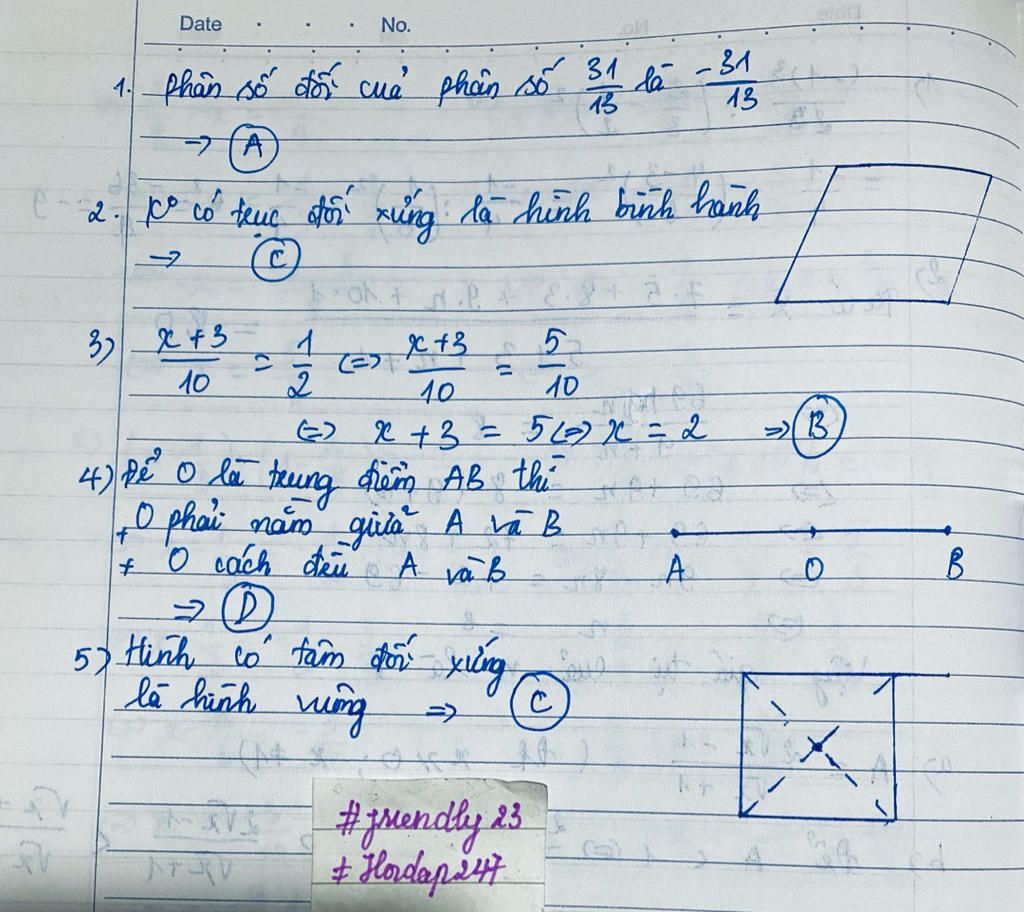 Date . . . No.
1. Phân số đối của phân số 31/13 là -31/13
→ A
2. Kº có trục đối xứng là hình bình hành
→ C
3) x+3/10 = 1/2 <=> x+3/10 = 5/10
<=> x + 3 = 5 <=> x = 2 => B
4) Để O là trung điểm AB thì
+ O phải nằm giữa A và B
+ O cách đều A và B
A O B
=> D
5) Hình có tâm đối xứng
là hình vuông => C
#friendly23
# Hoidap247